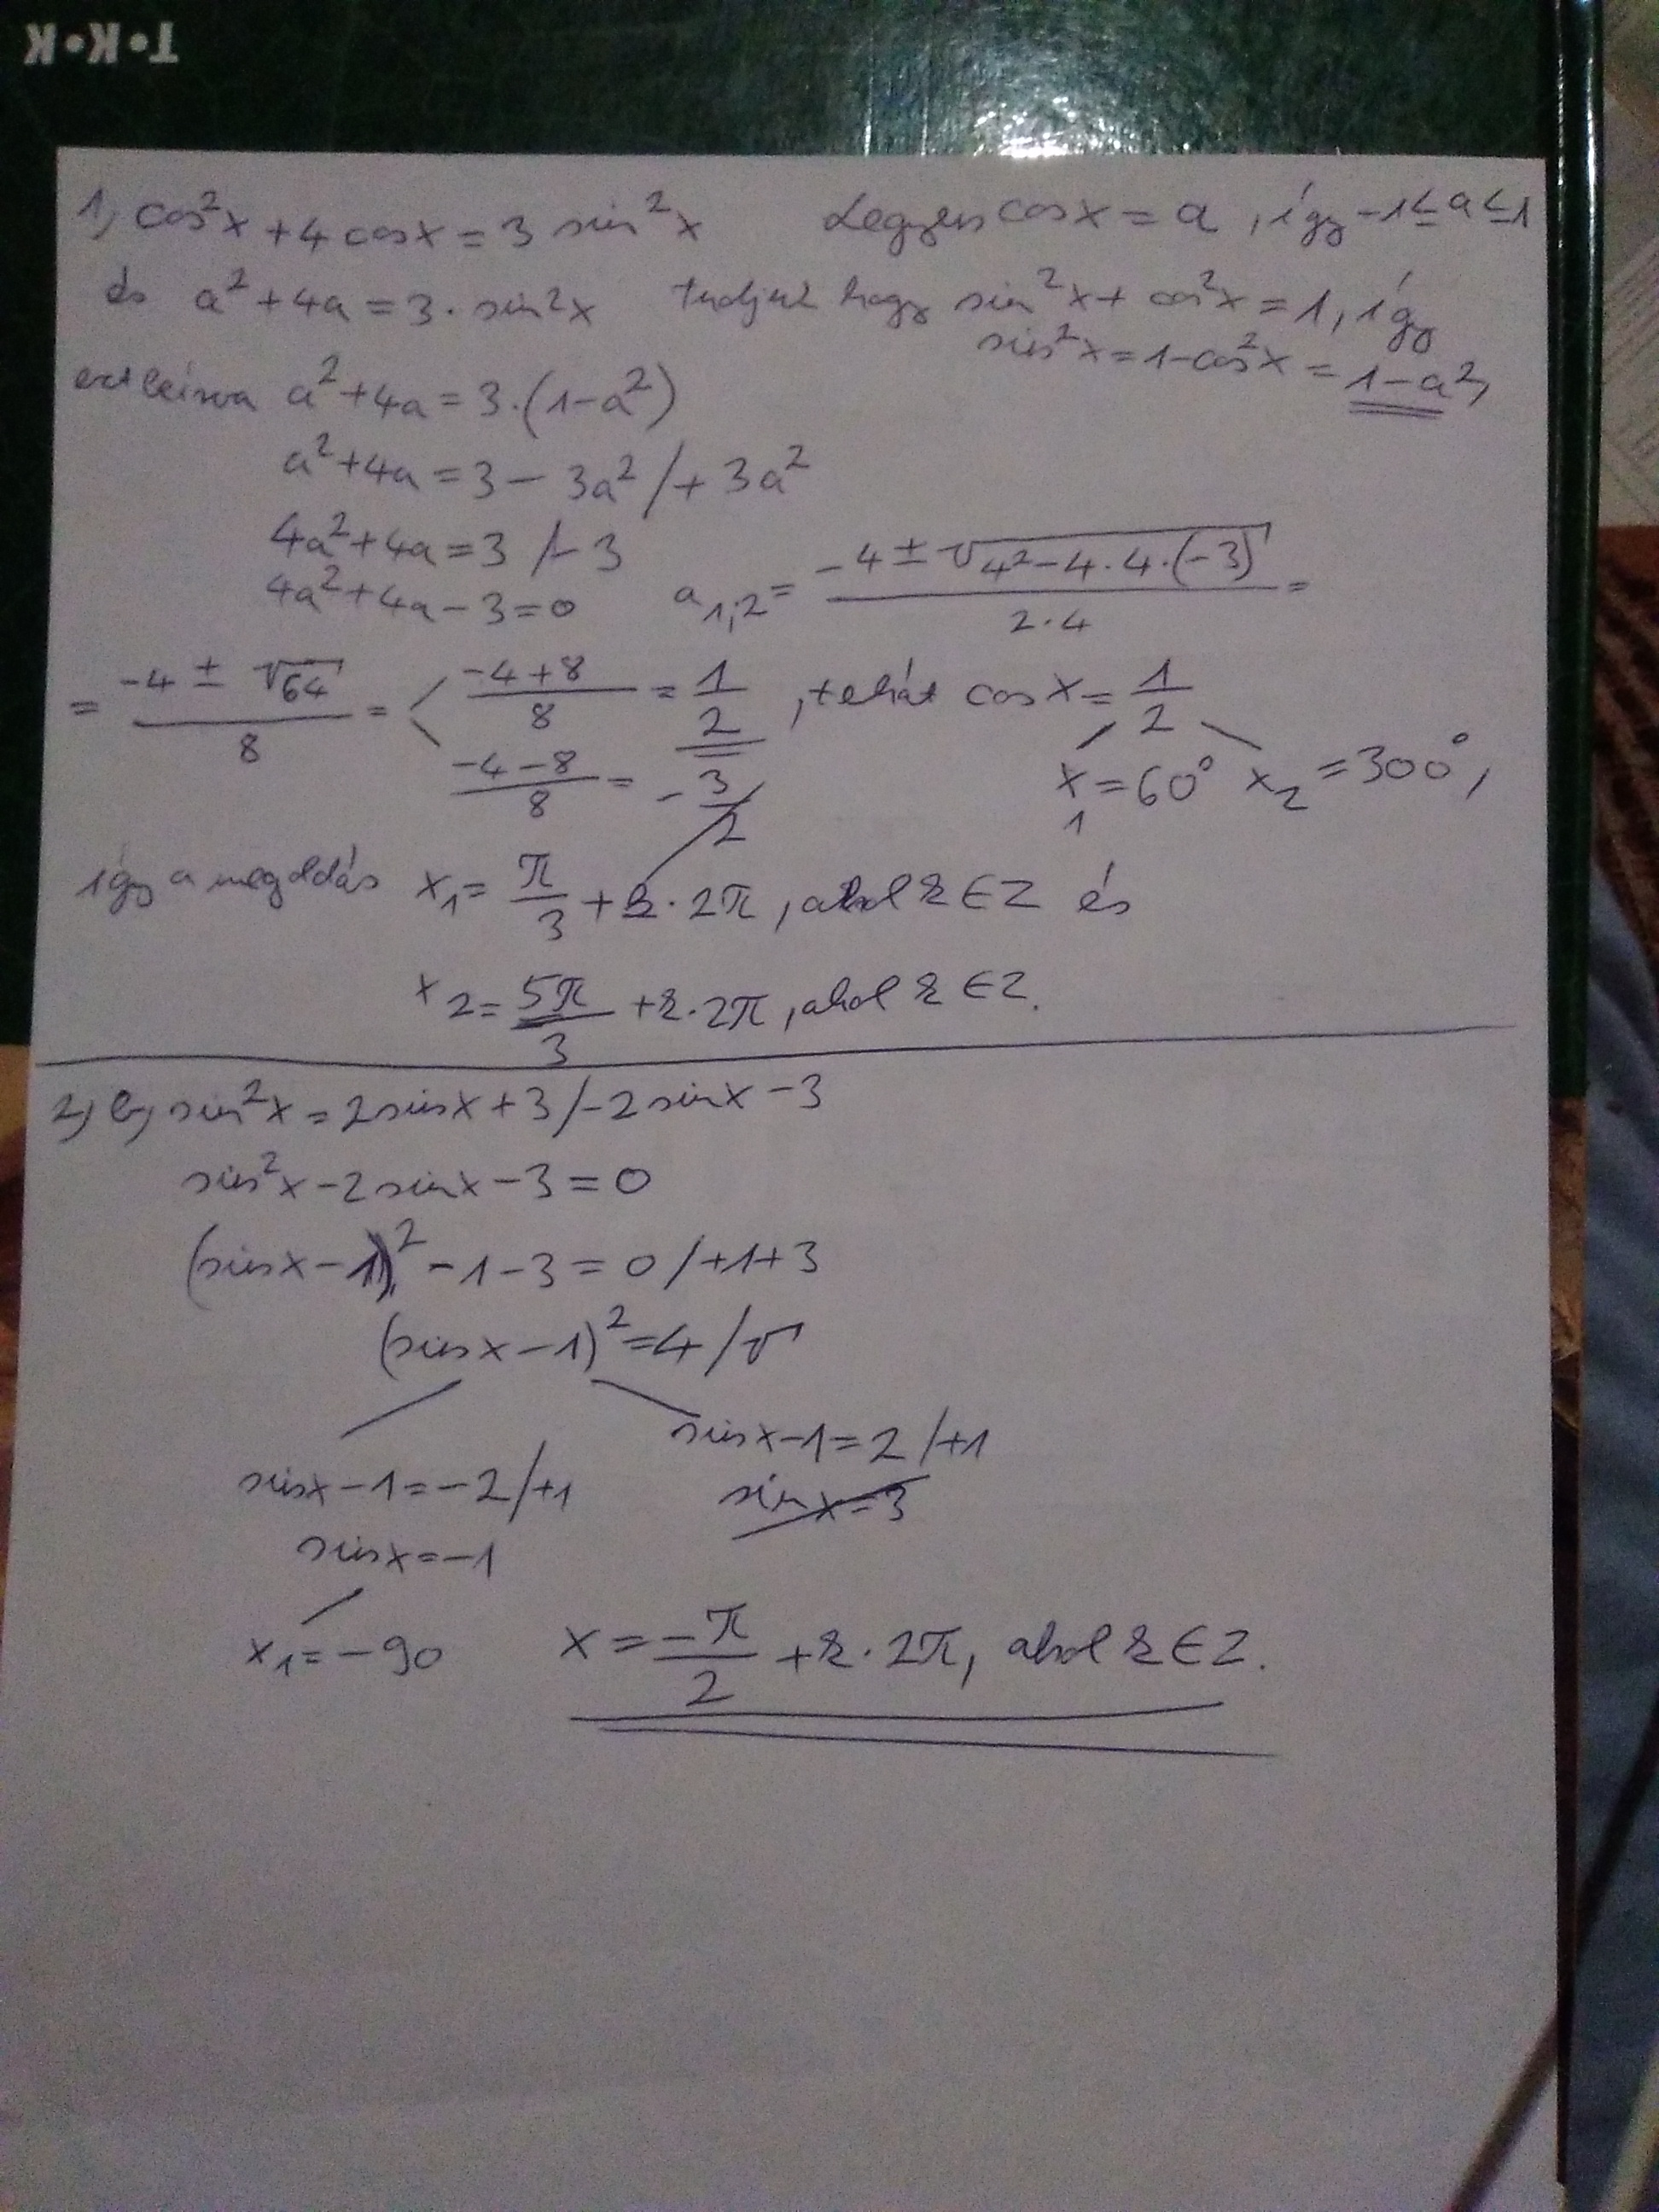 T•K•K
1, cos²x + 4 cosx = 3 sin²x Legyen cosx = a, így -1 ≤ a ≤ 1
és a² + 4a = 3 · sin²x tudjuk hogy sin²x + cos²x = 1, így
sin²x = 1 - cos²x = 1 - a²,
ezt beírva a² + 4a = 3 · (1 - a²)
a² + 4a = 3 - 3a² / + 3a²
4a² + 4a = 3 / - 3
4a² + 4a - 3 = 0 a₁;₂ = (-4 ± √(4² - 4 · 4 · (-3))) / (2 · 4) =
= (-4 ± √64) / 8 = < (-4 + 8) / 8 = 1/2, tehát cos x = 1/2
(-4 - 8) / 8 = -3/2 x₁ = 60° x₂ = 300°,
így a megoldás x₁ = π/3 + k · 2π, ahol k ∈ Z és
x₂ = 5π/3 + k · 2π, ahol k ∈ Z.
2, b, sin²x = 2 sinx + 3 / - 2 sinx - 3
sin²x - 2 sinx - 3 = 0
(sinx - 1)² - 1 - 3 = 0 / + 1 + 3
(sinx - 1)² = 4 / √
sinx - 1 = 2 / +1
sinx - 1 = -2 / +1
sin x = 3
sinx = -1
x₁ = -90 x = -π/2 + k · 2π, ahol k ∈ Z.